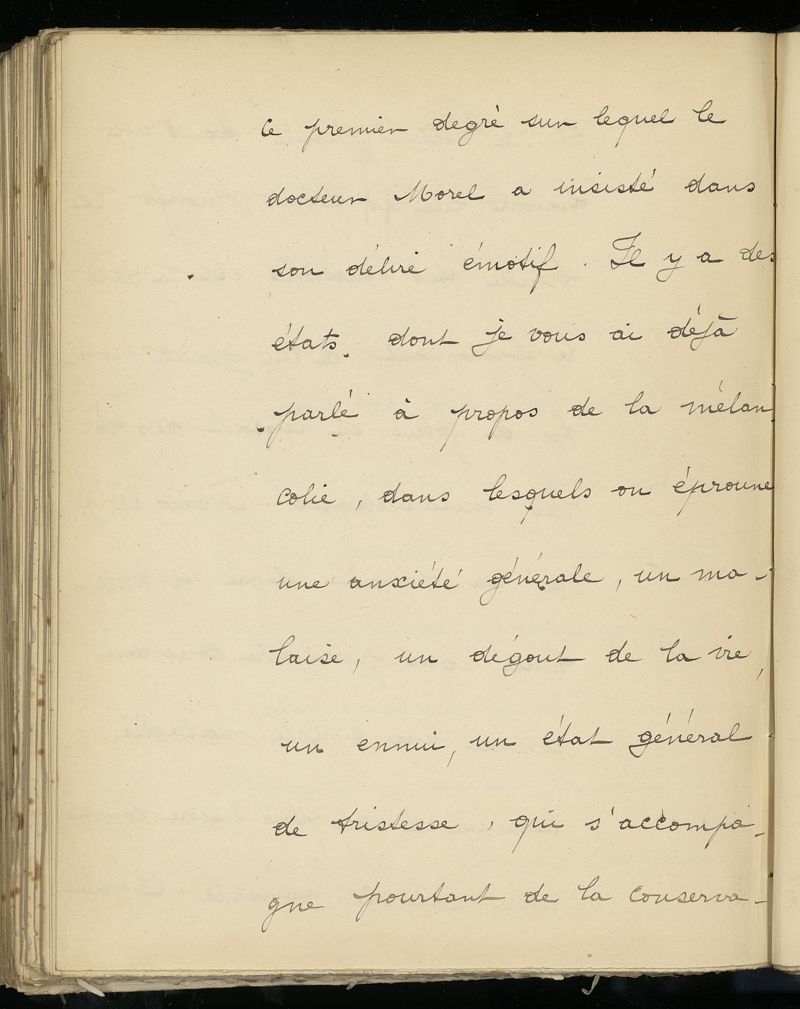 ce premier degré sur lequel le
docteur Morel a insisté dans
son délire émotif. Il y a des
états, dont je vous ai déjà
parlé à propos de la mélan
colie, dans lesquels on éprouve
une anxiété générale, un ma-
laise, un dégout de la vie,
un ennui, un état général
de tristesse, qui s'accompa-
gne pourtant de la conserva-